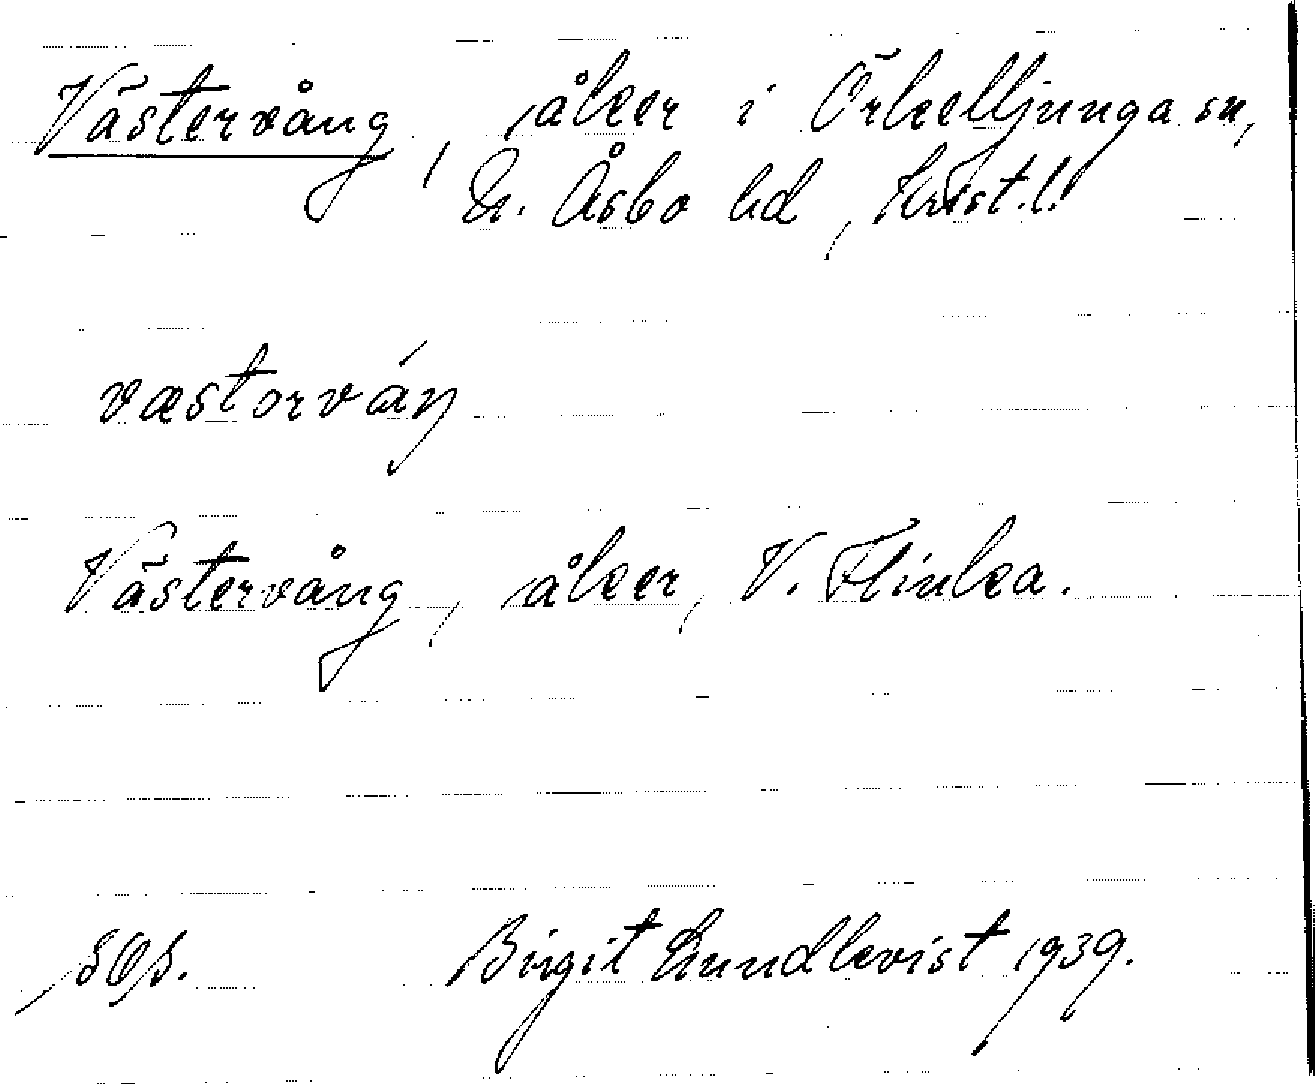 Västervång, åker i Örkelljunga sn,
N. Åsbo hd, Krist. l.
væstorváŋ
Västervång, åker, V. Flinka.
Birgit Lundkvist 1939.